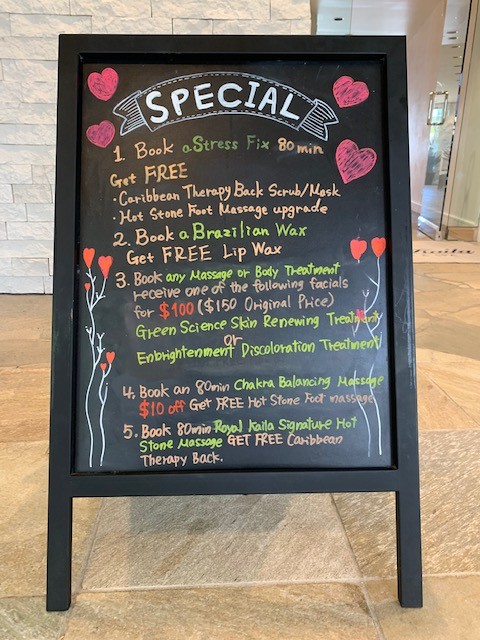 SPECIAL
1. Book a Stress Fix 80 min
Get FREE
· Caribbean Therapy Back Scrub/Mask
· Hot Stone Foot Massage upgrade
2. Book a Brazilian Wax
Get FREE Lip Wax
3. Book any Massage or Body Treatment
receive one of the following facials
for $100 ($150 Original Price)
Green Science Skin Renewing Treatment
or
Enbrightenment Discoloration Treatment
4. Book an 80min Chakra Balancing Massage
$10 off Get FREE Hot Stone Foot massage
5. Book 80min Royal Kaila Signature Hot
Stone Massage GET FREE Caribbean
Therapy Back.